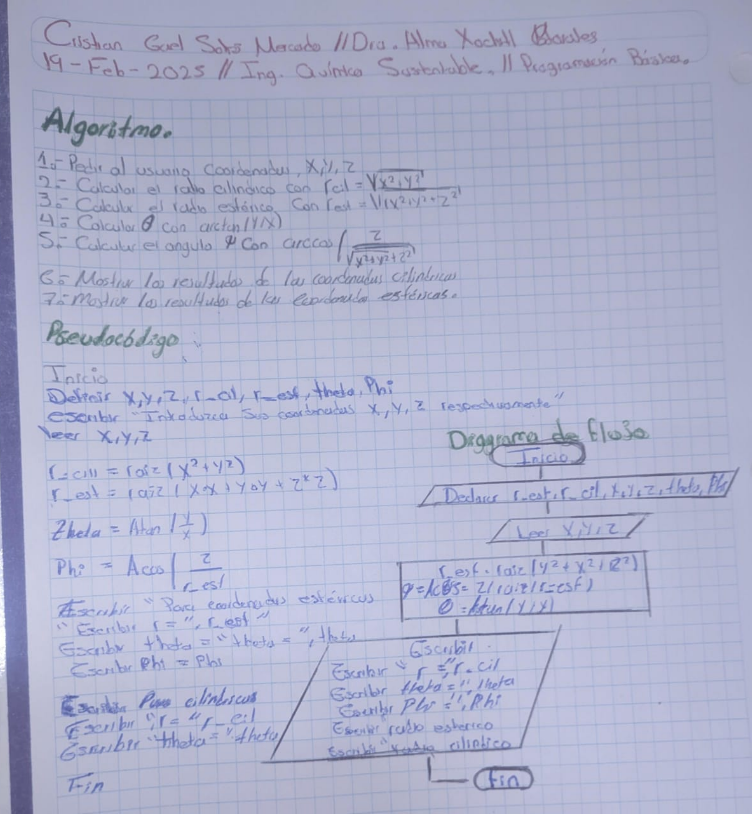 Cristian Gael Sotrs Mercado // Dra. Alma Xochitl
19-Feb-2025 // Ing. Química Sustentable. // Programación Básica.
Algoritmo.
1.- Pedir al usuario coordenadas, X, Y, Z
2.- Calcular el radio cilíndrico con rcil = √x²+y²
3.- Calcular el radio esférico, Con rest = √(x²+y²+z²
4.- Calcular θ con arctan(Y/X)
5.- Calcular el angulo φ Con arccos(z/√x²+y²+z²
6.- Mostrar los resultados de las coordenadas cilindricas
7.- Mostrar los resultados de las coordenada esféricas.
Pseudocódigo
Inicio
Definir X, Y, Z, r_cil, r_esf, theta, Phi
escribir "Introduzca Sus coordenadas X, Y, Z respectivamente"
leer X, Y, Z
r_cil = raiz (X²+Y²)
r_est = raiz (X*X + Y*Y + Z*Z)
theta = Atan (Y/X)
Phi = Acos (Z/r_esf
Escribir "Para coordenadas esféricas
"Escribir r = ", r_esf"
Escribir theta = "theta = ", theta
Escribir Phi = Phi
Escribir Para cilindricas
Escribir "r = "r_cil
Escribir "theta = "theta
Fin
Diagrama de flujo
Inicio
Declarar r_est, r_cil, X, Y, Z, theta, Phi
Leer X, Y, Z
r_esf = raiz (Y²+X²+Z²)
φ = ACOS = Z/(raiz(r_esf)
θ = Atan (Y/X)
Escribir
Escribir " r = "r_cil
Escribir theta = ", theta
Escribir Phi = ", Phi
Escribir radio esferico
Escribir cilindrico
Fin